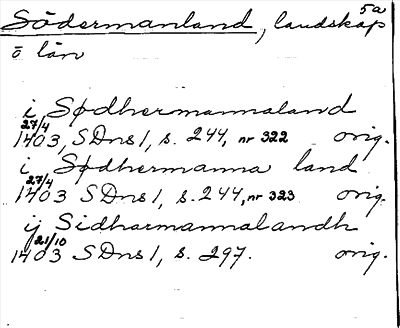 5a
Södermanland, landskap
o län
i Sødhermannaland
27/4 1403, SDns 1, s. 244, nr 322 orig.
i Sødhermanna land
27/4 1403 SDns 1, s. 244, nr 323 orig.
ij Sidharmannalandh
21/10 1403 SDns 1, s. 297. orig.